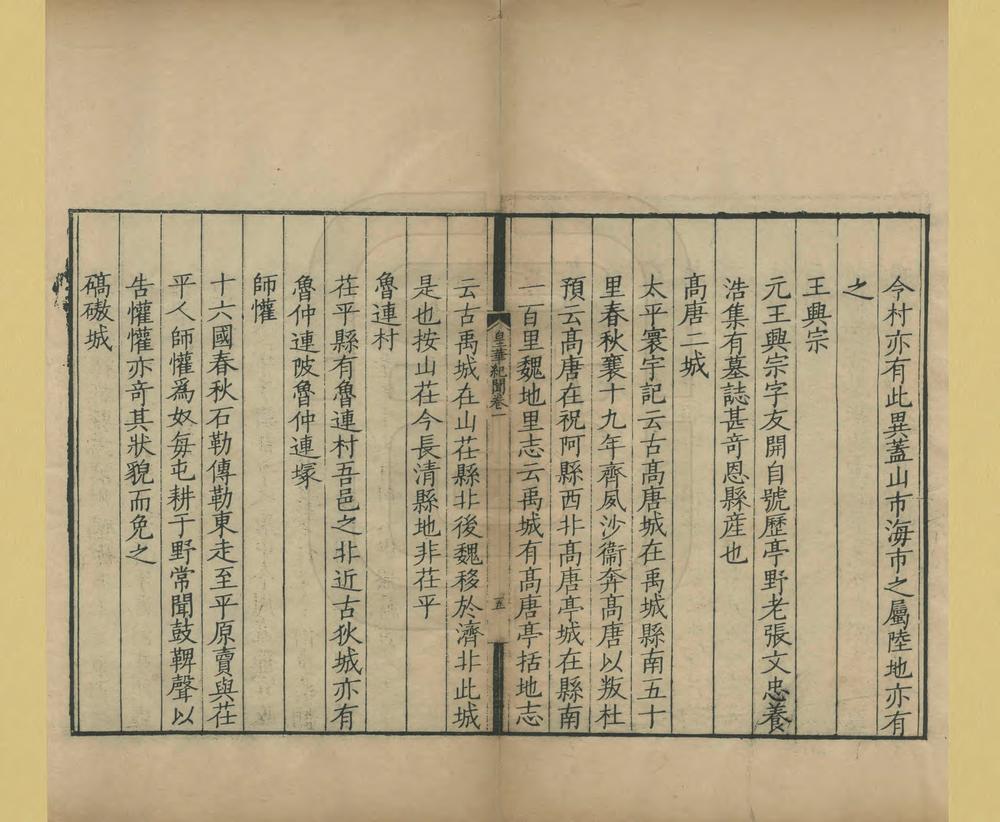 今村亦有此異蓋山市海市之屬陸地亦有
之
王興宗
元王興宗字友開自號歷亭野老張文忠養
浩集有墓誌甚竒恩縣産也
髙唐二城
太平寰宇記云古髙唐城在禹城縣南五十
里春秋襄十九年齊夙沙衞奔髙唐以叛杜
預云髙唐在祝阿縣西北髙唐亭城在縣南
一百里魏地里志云禹城有髙唐亭括地志
皇華紀聞卷一
五
云古禹城在山茌縣北後魏移於濟北此城
是也按山茌今長清縣地非茌平
魯連村
茌平縣有魯連村吾邑之北近古狄城亦有
魯仲連陂魯仲連塚
師懽
十六國春秋石勒傳勒東走至平原賣與茌
平人師懽爲奴每屯耕于野常聞鼓鞞聲以
告懽懽亦竒其狀貌而免之
碻磝城